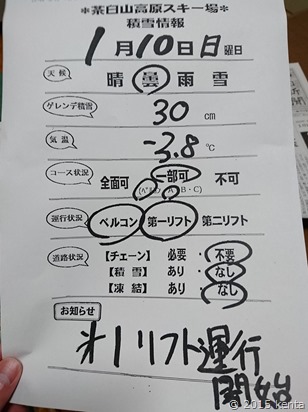 ＊茶臼山高原スキー場＊
積雪情報
1月10日日曜日
天候 晴 曇 雨 雪
ゲレンデ積雪 30 cm
気温 -3.8 ℃
コース状況 全面可 一部可 不可
B・C)
運行状況 ベルコン 第一リフト 第二リフト
道路状況 【チェーン】 必要 ・ 不要
【積雪】 あり ・ なし
【凍結】 あり ・ なし
お知らせ
オ1リフト運行
開始
© 2015 kenta